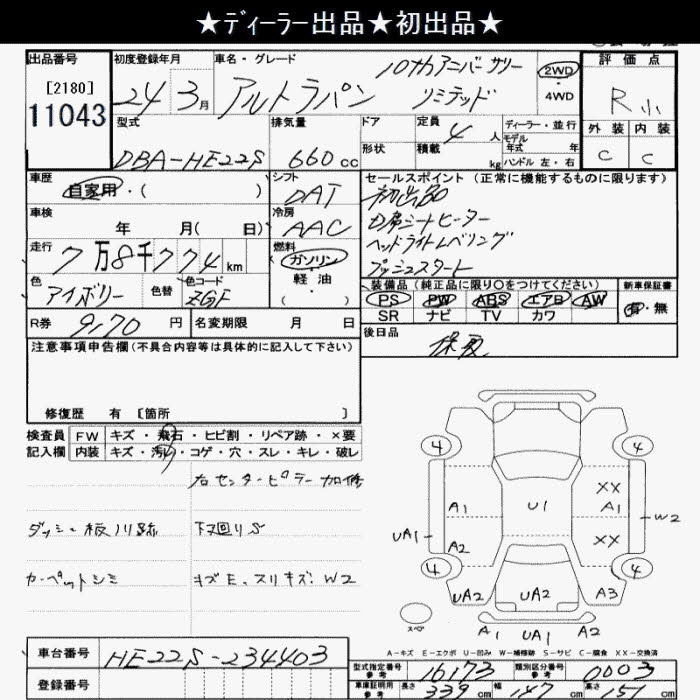 ★ディーラー出品★初出品★
出品番号 初度登録年月 車名・グレード 評価点
[2180] 24 3月 アルトラパン 10thアニバーサリー リミテッド 2WD・4WD R小
11043
型式 排気量 ドア 定員 4人 ディーラー・並行 外装 内装
DBA-HE22S 660cc 形状 積載 kg モデル年式 年 ハンドル 左・右 C C
車歴 シフト セールスポイント(正常に機能するものに限ります)
自家用・( ) DAT 初出品
車検 冷房 D席シートヒーター
年 月( 日) AAC ヘッドライトレベリング
走行 燃料 プッシュスタート
7万8千774km ガソリン・軽油・( )
色 色替 色コード 装備品(純正品に限り○をつけてください) 新車保証書
アイボリー ZGF PS PW ABS エアB AW 有・無
SR ナビ TV カワ
R券 9170円 名変期限 月 日 後日品
保、取
注意事項申告欄(不具合内容等は具体的に記入して下さい)
修復歴 有 [箇所 ]
検査員 FW キズ・飛石・ヒビ割・リペア跡・×要
記入欄 内装 キズ・汚れ・コゲ・穴・スレ・キレ・破レ
右センターピラー加修
ダッシュ板ノリ跡 下廻りS
カーペットシミ キズE、スリキズ、W2
4 4
XX
A1 U1 A1 W2
UA1 A2 XX
4 4
UA2 UA2 A3
スペア A1 UA1 A2
A-キズ E-エクボ U-凹み W-補修跡 S-サビ C-腐食 XX-交換済
車台番号 HE22S-234403
型式指定番号 参考 16173 類別区分番号 参考 0003
登録番号
車庫証明用 参考 長さ 339cm 幅 147cm 高さ 151cm